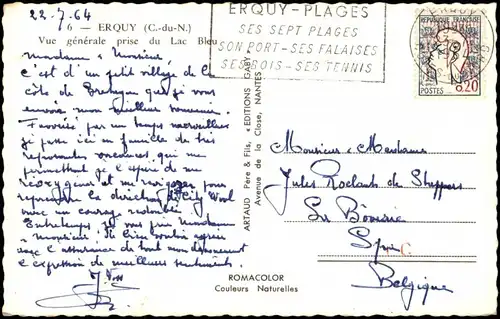 22-7-64
6 — ERQUY (C.-du-N.)
Vue générale prise du Lac Bleu
Madame - Monsieur
c'est d'un petit village de la
côte de Bretagne que je vous
envoie mon meilleur souvenir.
Favorisés par un temps merveilleux
je passe ici en famille de très
reposantes vacances, qui me
permettront je l'espère de me
et de me pour
reprendre la direction de City Wool
avec un courage redoublé
Entretemps, je vous prie Madame
- Monsieur, de bien vouloir agréer
avec l'assurance de tout mon dévouement
l'expression de meilleurs sentiments.
ARTAUD Père & Fils, « EDITIONS GABY »
Avenue de la Close, NANTES
ERQUY-PLAGES
SES SEPT PLAGES
SON PORT - SES FALAISES
SES BOIS - SES TENNIS
REPUBLIQUE FRANÇAISE
POSTES
0,20
Monsieur - Madame
Jules Roelants de
La
Belgique
ROMACOLOR
Couleurs Naturelles